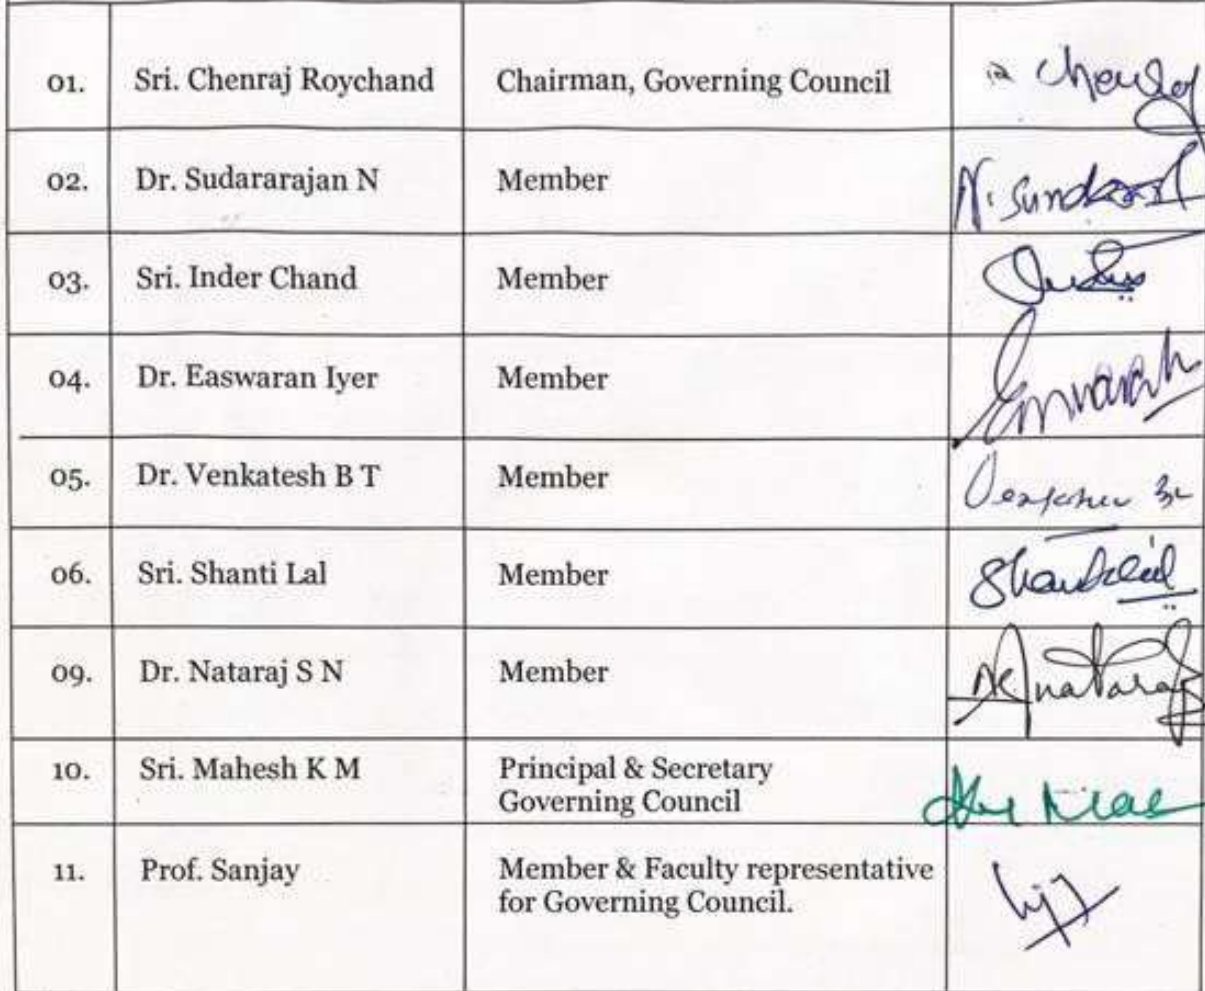 01. Sri. Chenraj Roychand Chairman, Governing Council
02. Dr. Sudararajan N Member N. Sundar
03. Sri. Inder Chand Member
04. Dr. Easwaran Iyer Member
05. Dr. Venkatesh B T Member
06. Sri. Shanti Lal Member Shantilal
09. Dr. Nataraj S N Member nataraj
10. Sri. Mahesh K M Principal & Secretary
Governing Council
11. Prof. Sanjay Member & Faculty representative
for Governing Council.